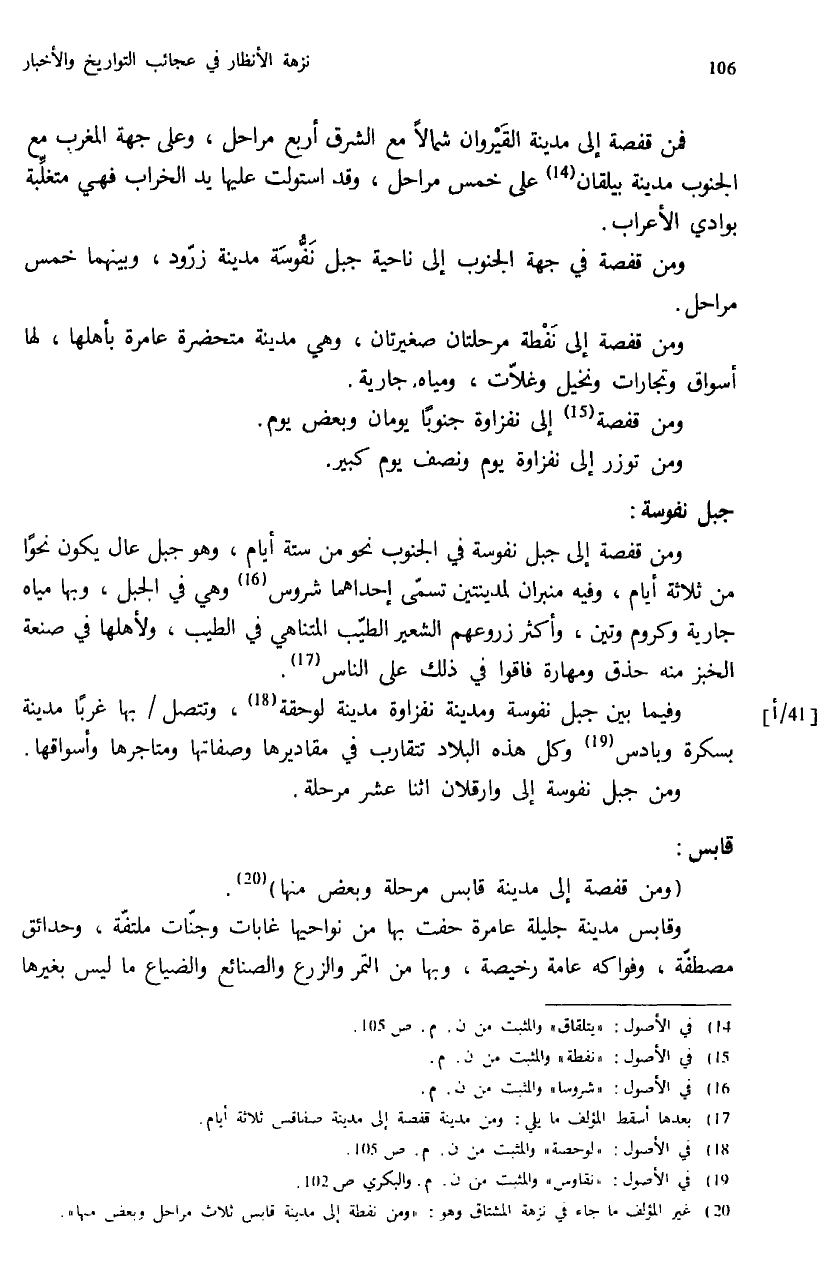 106
نزهة الأنظار في عجائب التواريخ والأخبار
فمن قفصة إلى مدينة القَيْروان شمالاً مع الشرق أربع مراحل ، وعلى جهة المغرب مع
الجنوب مدينة بيلقان(14) على خمس مراحل ، وقد استولت عليها يد الخراب فهي متغلِّبة
بوادي الأعراب .
ومن قفصة في جهة الجنوب إلى ناحية جبل نَفُّوسَة مدينة زرّود ، وبينهما خمس
مراحل .
ومن قفصة إلى نَفْطة مرحلتان صغيرتان ، وهي مدينة متحضرة عامرة بأهلها ، لها
أسواق وتجارات ونخيل وغلاّت ، ومياه جارية .
ومن قفصة(15) إلى نفزاوة جنوبًا يومان وبعض يوم .
ومن توزر إلى نفزاوة يوم ونصف يوم كبير .
جبل نفوسة :
ومن قفصة إلى جبل نفوسة في الجنوب نحو من ستة أيام ، وهو جبل عال يكون نحوًا
من ثلاثة أيام ، وفيه منبران لمدينتين تسمّى إحداهما شروس(16) وهي في الجبل ، وبها مياه
جارية وكروم وتين ، وأكثر زروعهم الشعير الطيّب المتناهي في الطيب ، ولأهلها في صنعة
الخبز منه حذق ومهارة فاقوا في ذلك على الناس(17) .
وفيما بين جبل نفوسة ومدينة نفزاوة مدينة لوحقة(18) ، وتتصل / بها غربًا مدينة
[41/أ]
بسكرة وبادس(19) وكل هذه البلاد تتقارب في مقاديرها وصفاتها ومتاجرها وأسواقها .
ومن جبل نفوسة إلى وارقلان اثنا عشر مرحلة .
قابس :
(ومن قفصة إلى مدينة قابس مرحلة وبعض منها)(20) .
وقابس مدينة جليلة عامرة حفت بها من نواحيها غابات وجنّات ملتفّة ، وحدائق
مصطفّة ، وفواكه عامة رخيصة ، وبها من التمر والزرع والصنائع والضياع ما ليس بغيرها
14) في الأصول : «يتلقاق» والمثبت من ن . م . ص 105 .
15) في الأصول : «نفطة» والمثبت من ن . م .
16) في الأصول : «شروسا» والمثبت من ن . م .
17) بعدها أسقط المؤلف ما يلي : ومن مدينة قفصة إلى مدينة صفاقس ثلاثة أيام .
18) في الأصول : «لوحصة» والمثبت من ن . م . ص 105 .
19) في الأصول : «نقاوس» والمثبت من ن . م . والبكري ص 102 .
20) غير المؤلف ما جاء في نزهة المشتاق وهو : «ومن نفطة إلى مدينة قابس ثلاث مراحل وبعض منها» .